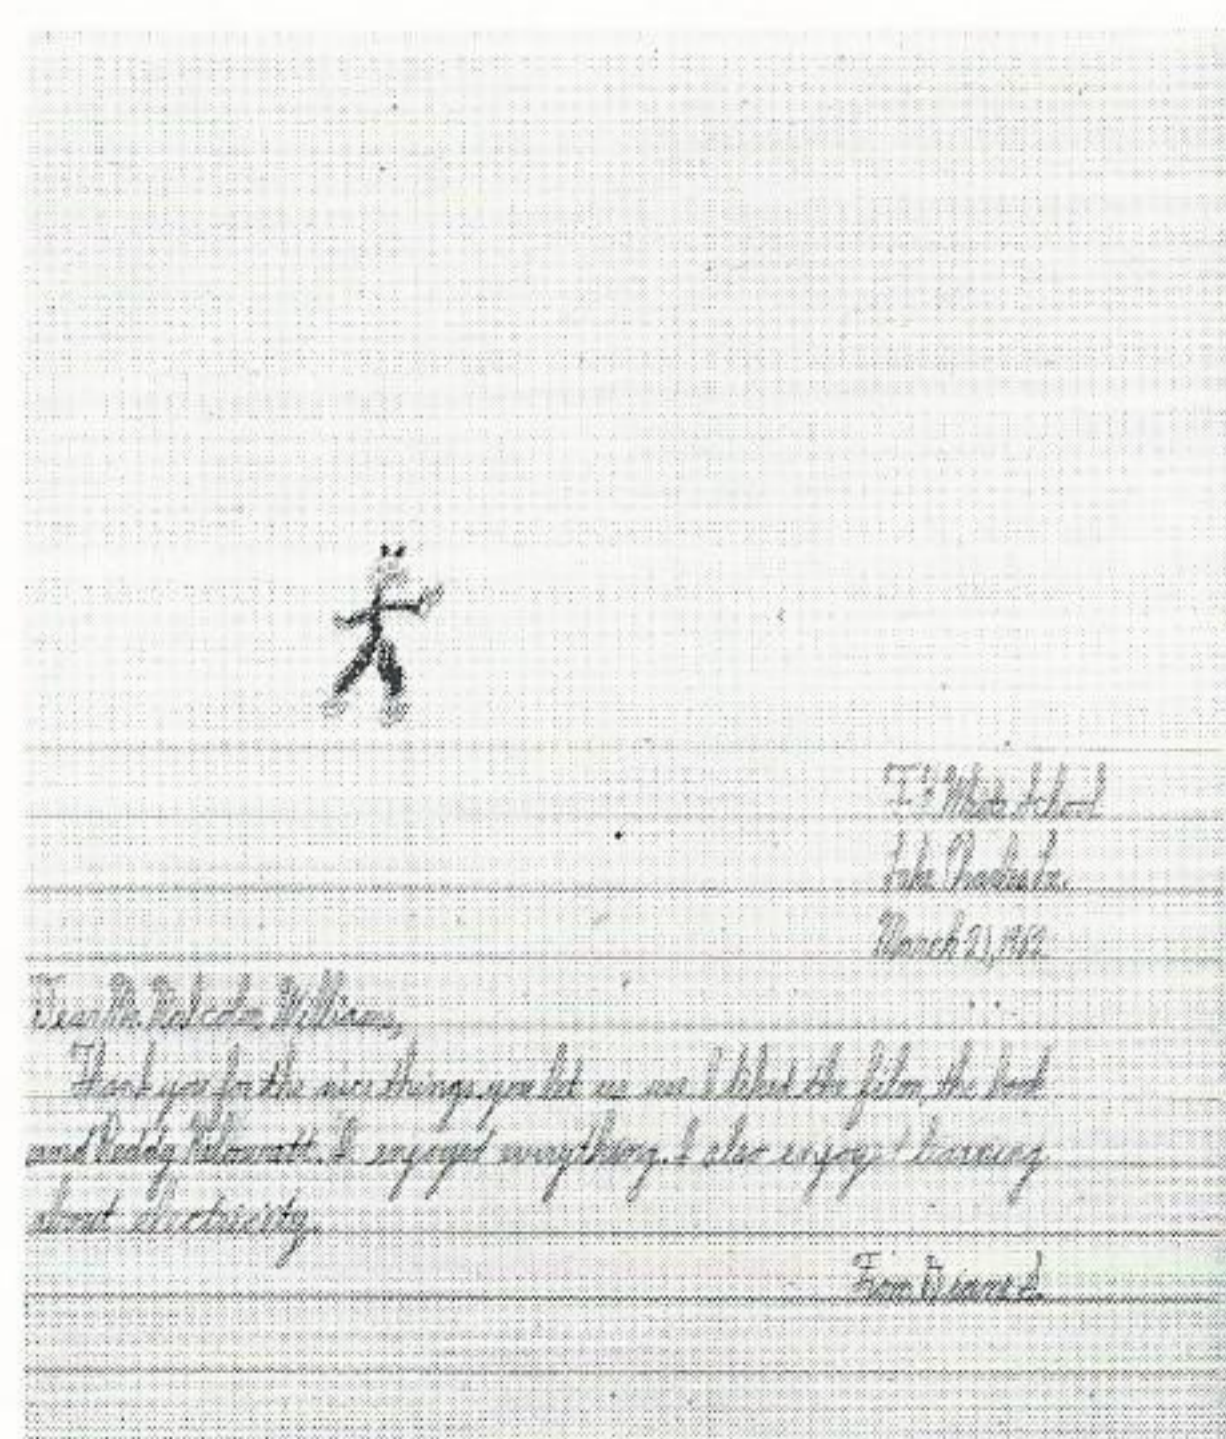 T. S. White School
Lake Charles La.
March 21, 1962
Dear Mr. Malcolm Williams,
Thank you for the nice things you let us see. I liked the film, the book
and Reddy Kilowatt. I enjoyed everything. I also enjoyed learning
about electricity.
From Dianne S.